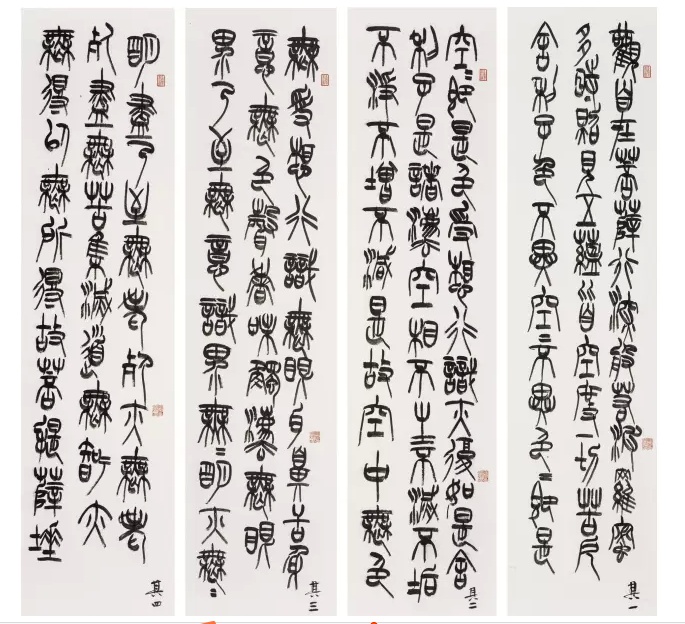 觀自在菩薩行深般若波羅蜜
多時照見五蘊皆空度一切苦厄
舍利子色不異空〻不異色〻即是
其一
空〻即是色受想行識亦復如是舍
利子是諸法空相不生不滅不垢
不淨不增不減是故空中無色
其二
無受想行識無眼耳鼻舌身
意無色聲香味觸法無眼
界乃至無意識界無〻明亦無〻
其三
明盡乃至無老死亦無老
死盡無苦集滅道無智亦
無得以無所得故菩提薩埵
其四